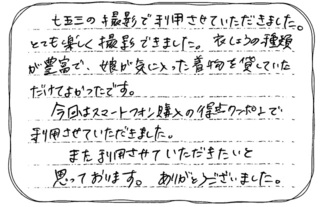 七五三の撮影で利用させていただきました。
とても楽しく撮影できました。衣しょうの種類
が豊富で、娘が気に入った着物を貸していた
だけてよかったです。
今回はスマートフォン購入の得点クーポンで
利用させていただきました。
また利用させていただきたいと
思っております。ありがとうございました。